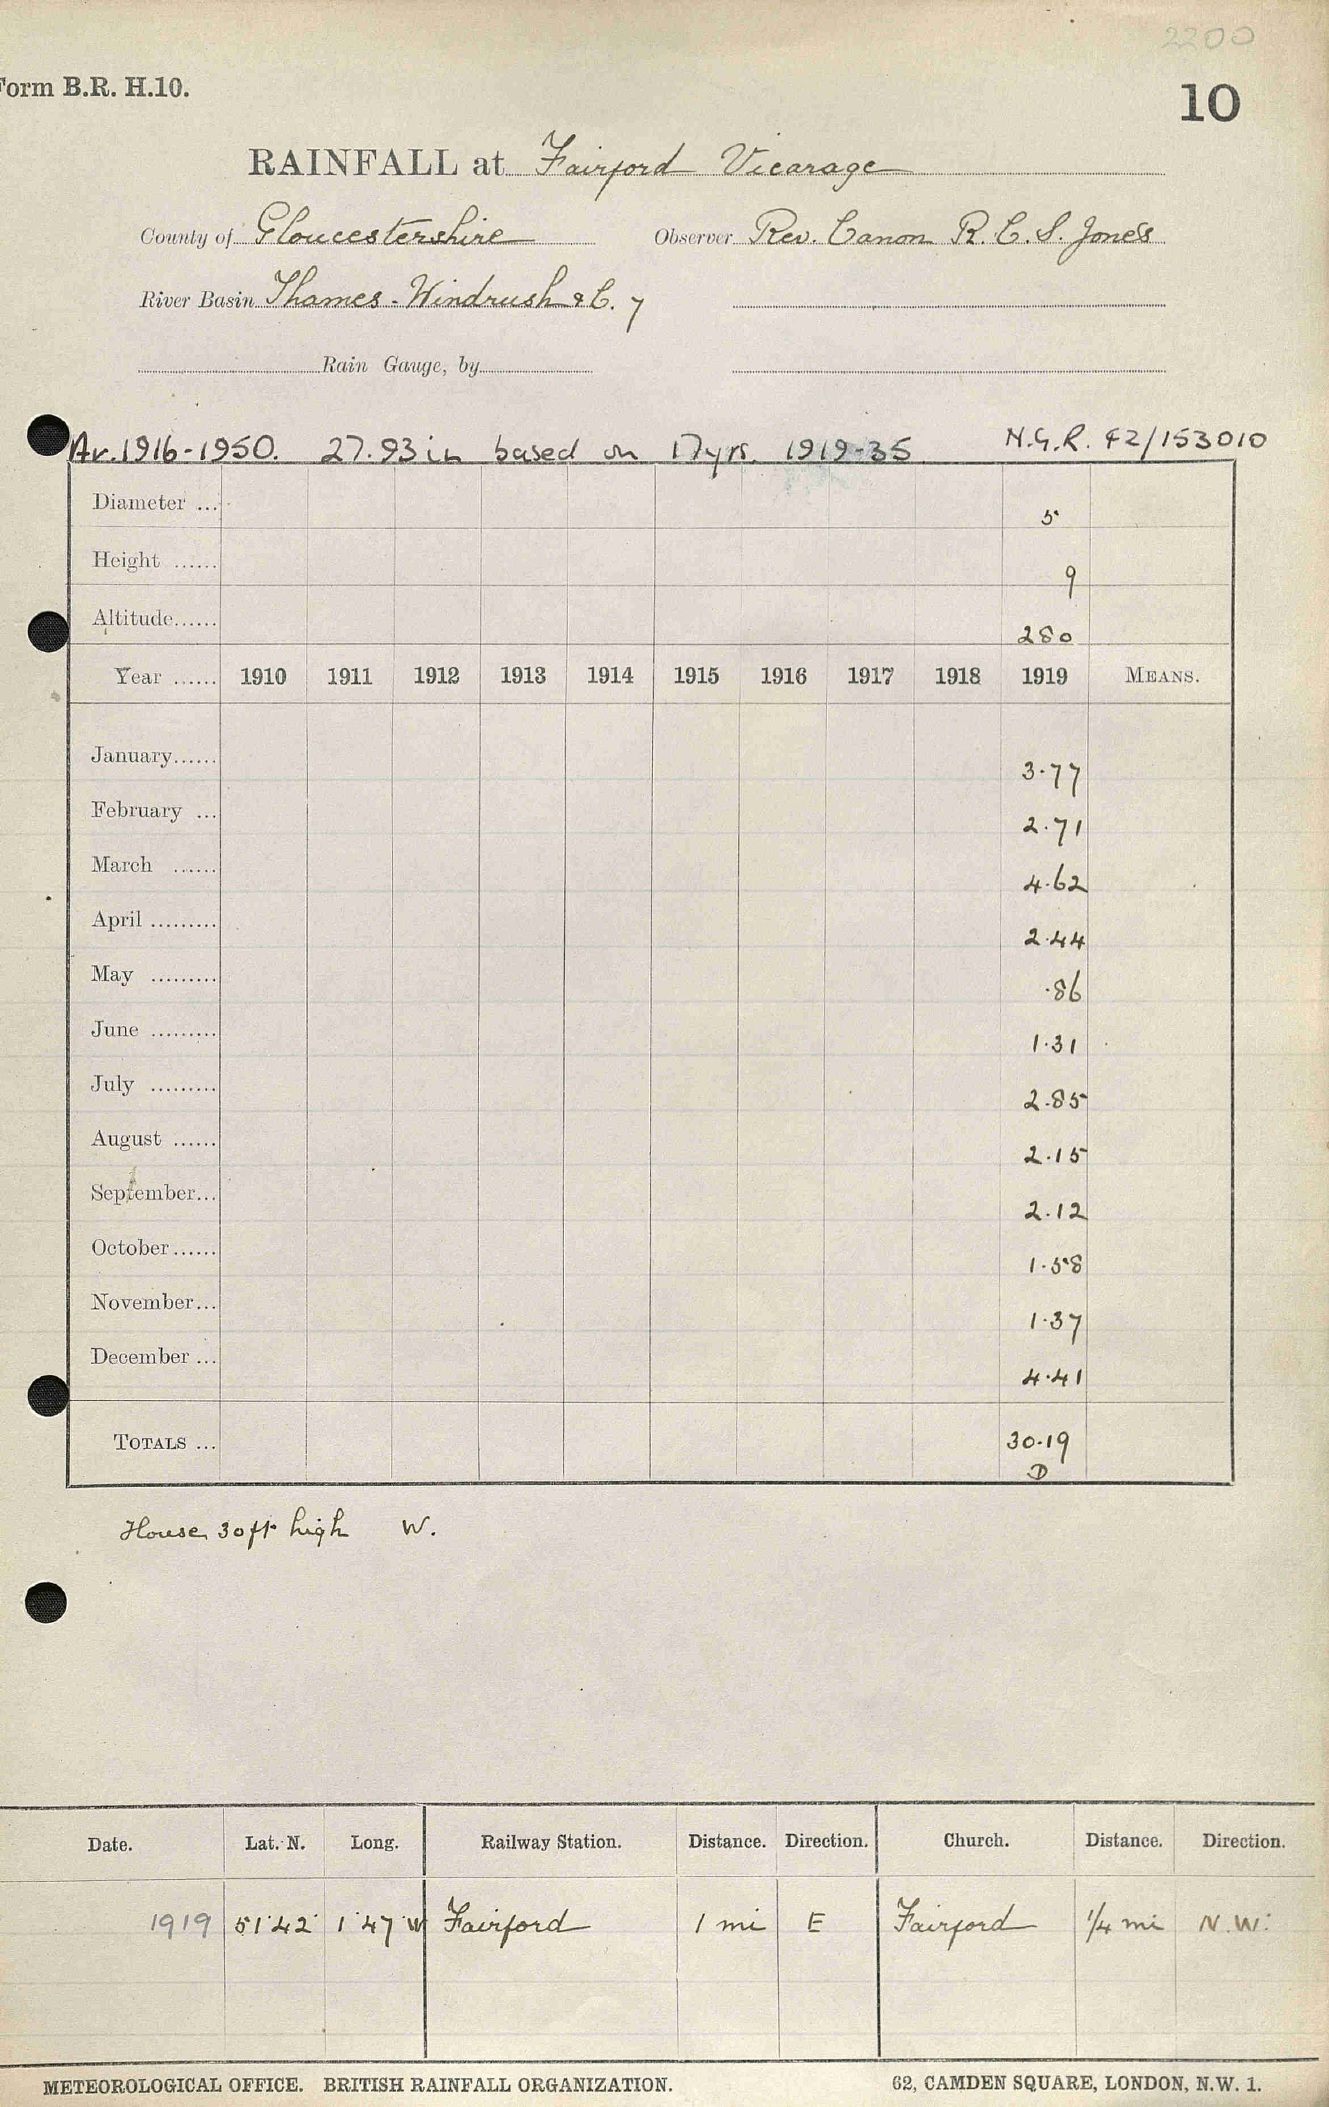 2200
Form B.R. H.10.
10
RAINFALL at Fairford Vicarage
County of Gloucestershire Observer Rev. Canon R. C. S. Jones
River Basin Thames - Windrush & C. 7
Rain Gauge, by
Av. 1916-1950. 27.93 in based on 17 yrs. 1919-35 N.G.R. 42/153010
Diameter ... 5
Height ...... 9
Altitude...... 280
Year ...... 1910 1911 1912 1913 1914 1915 1916 1917 1918 1919 MEANS.
January...... 3.77
February ... 2.71
March ...... 4.62
April ......... 2.44
May ......... .86
June ......... 1.31
July ......... 2.85
August ...... 2.15
September... 2.12
October...... 1.58
November... 1.37
December ... 4.41
TOTALS ... 30.19
D
House 30ft high W.
Date. Lat. N. Long. Railway Station. Distance. Direction. Church. Distance. Direction.
1919 51°42' 1°47'W Fairford 1 mi E Fairford 1/4 mi N.W.
METEOROLOGICAL OFFICE. BRITISH RAINFALL ORGANIZATION. 62, CAMDEN SQUARE, LONDON, N.W. 1.